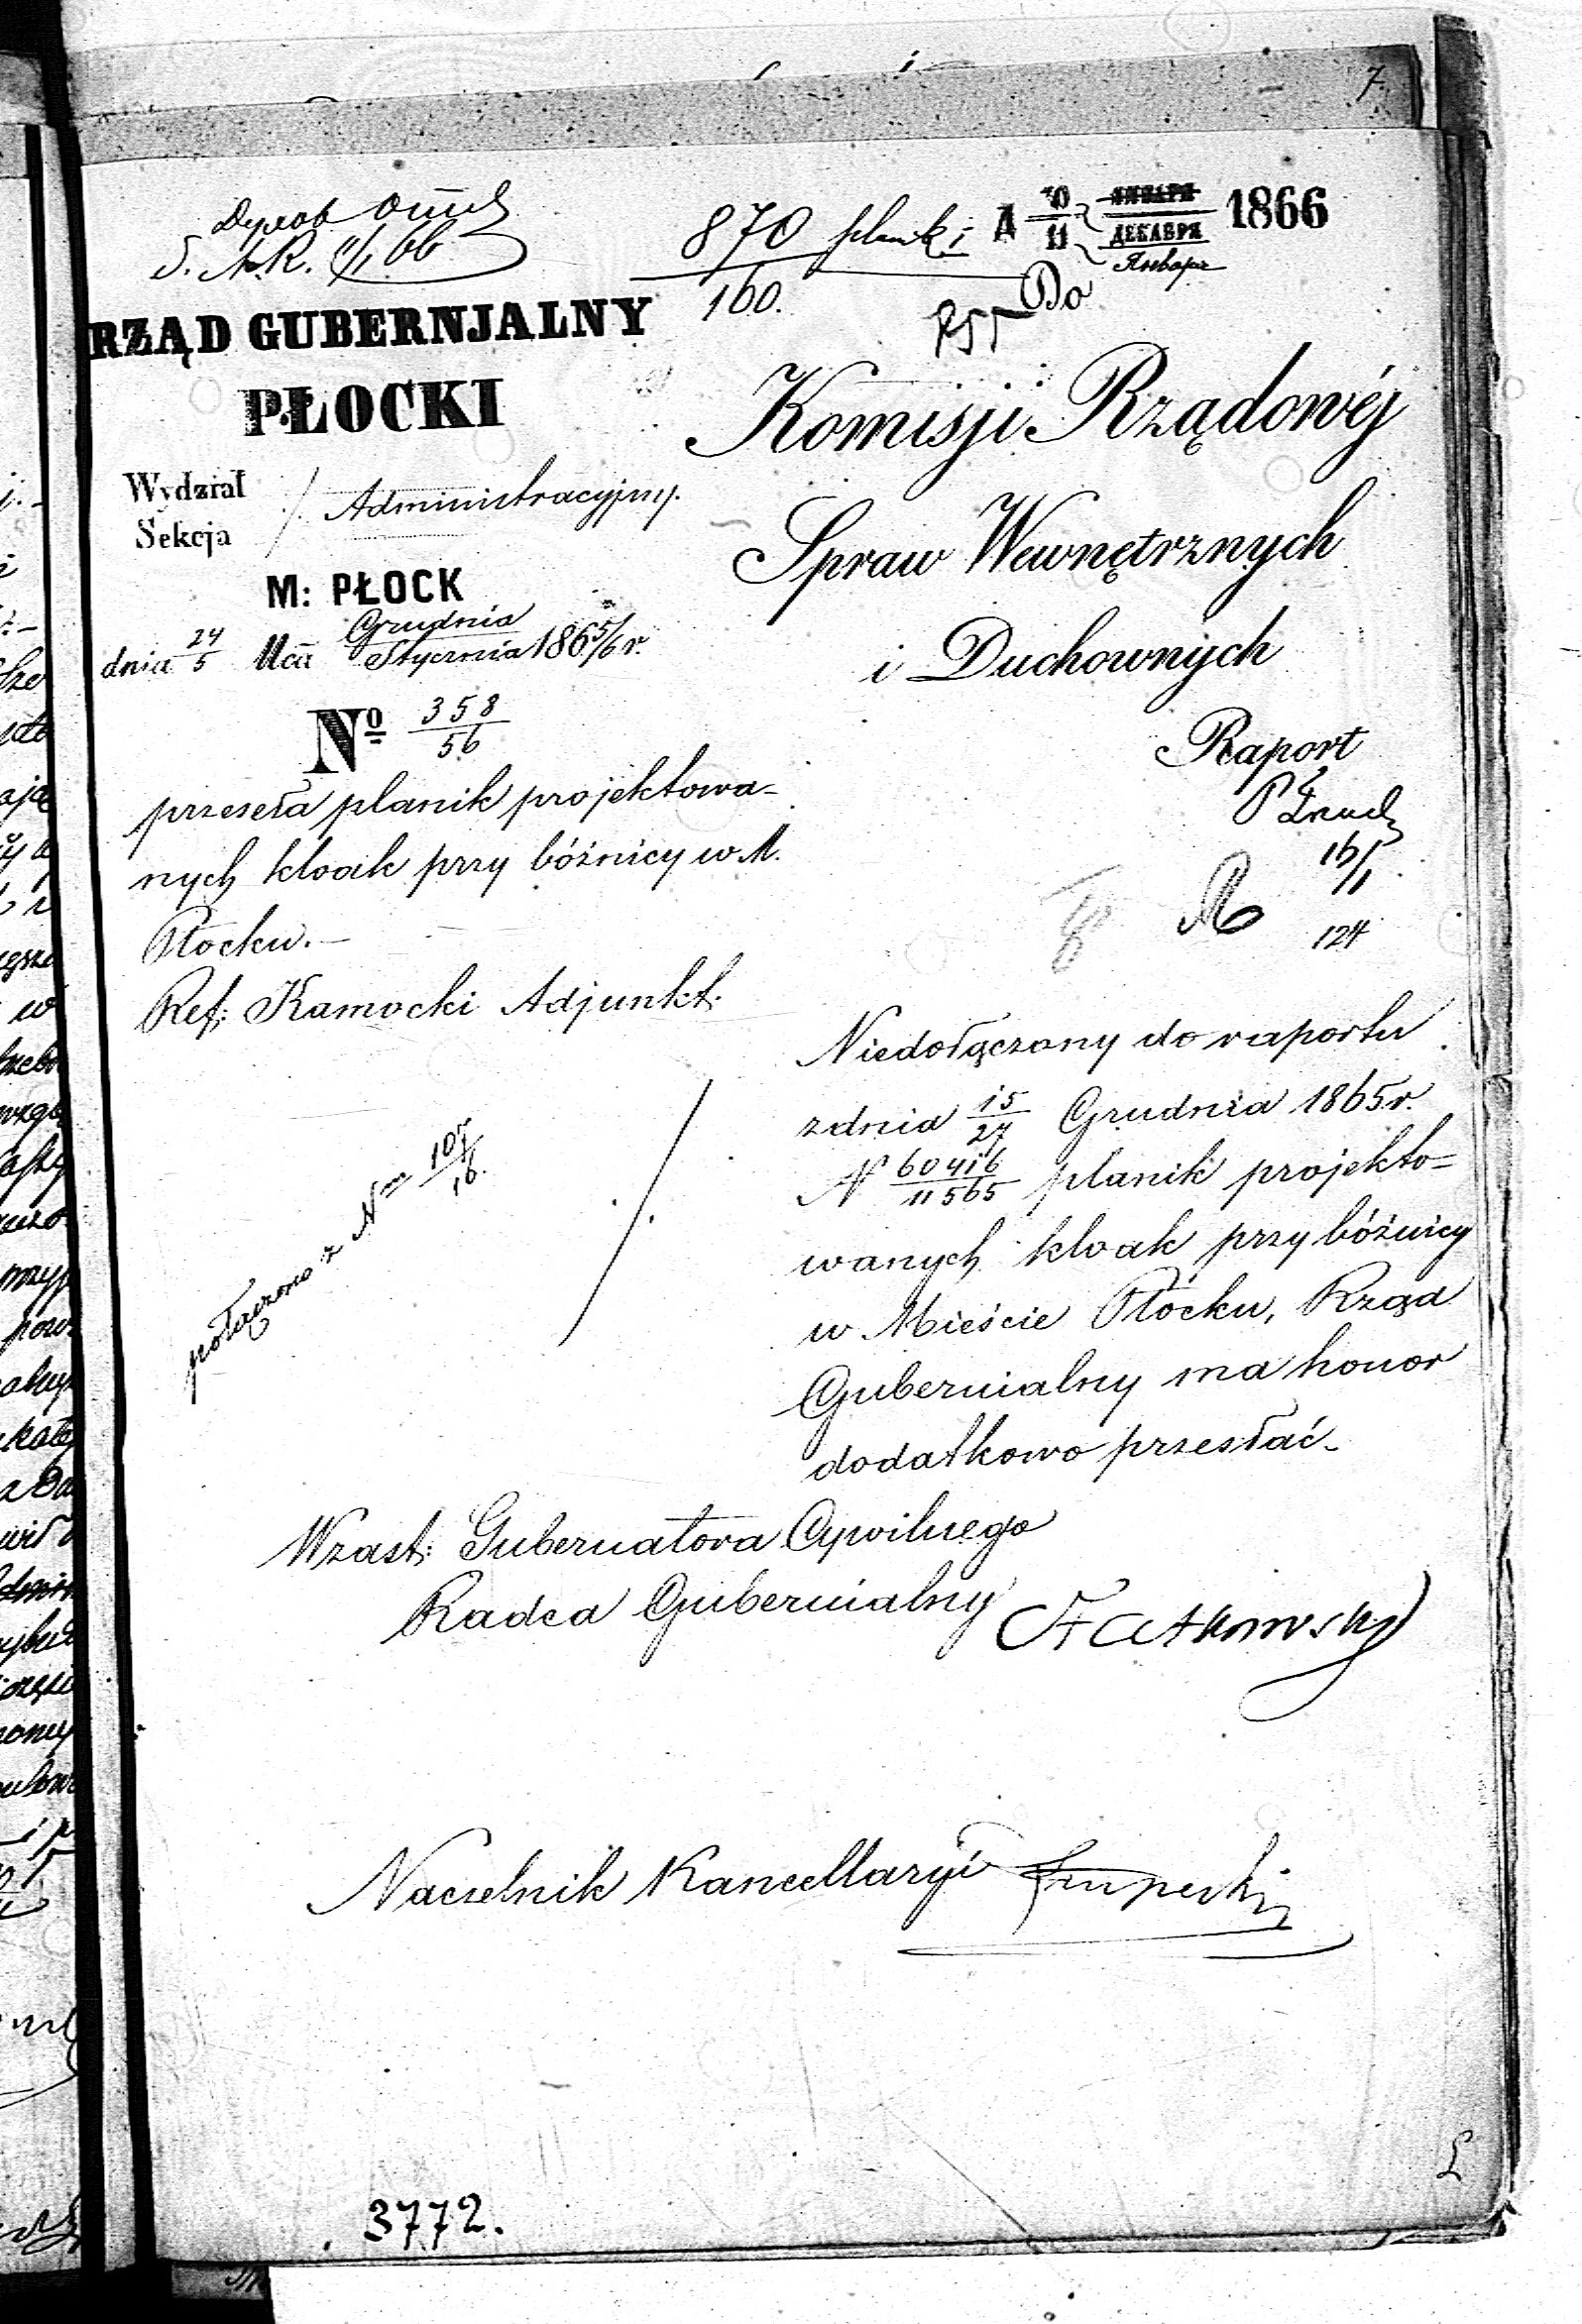 7
870 planki
160.
1866
ЯНВАРЯ
ДЕКАБРЯ
Января
RZĄD GUBERNJALNY
PŁOCKI
Wydział
Sekcja
Administracyjny.
M: PŁOCK
dnia 24/5 Mca Grudnia/Stycznia 1865/6 r.
Nº 358/56
przeseła planik projektowa-
nych kloak przy bóżnicy w M.
Płocku.-
Ref: Kamocki Adjunkt.
Do
Komisji Rządowéj
Spraw Wewnętrznych
i Duchownych
Raport
124
Niedołączony do raportu
z dnia 15/27 Grudnia 1865 r.
N 60416/11565 planik projekto=
wanych kloak przy bóżnicy
w Mieście Płocku, Rząd
Gubernialny ma honor
dodatkowo przesłać.
połączono z Nm
W zast: Gubernatora Cywilnego
Radca Gubernialny
Naczelnik Kancellaryi
3772.